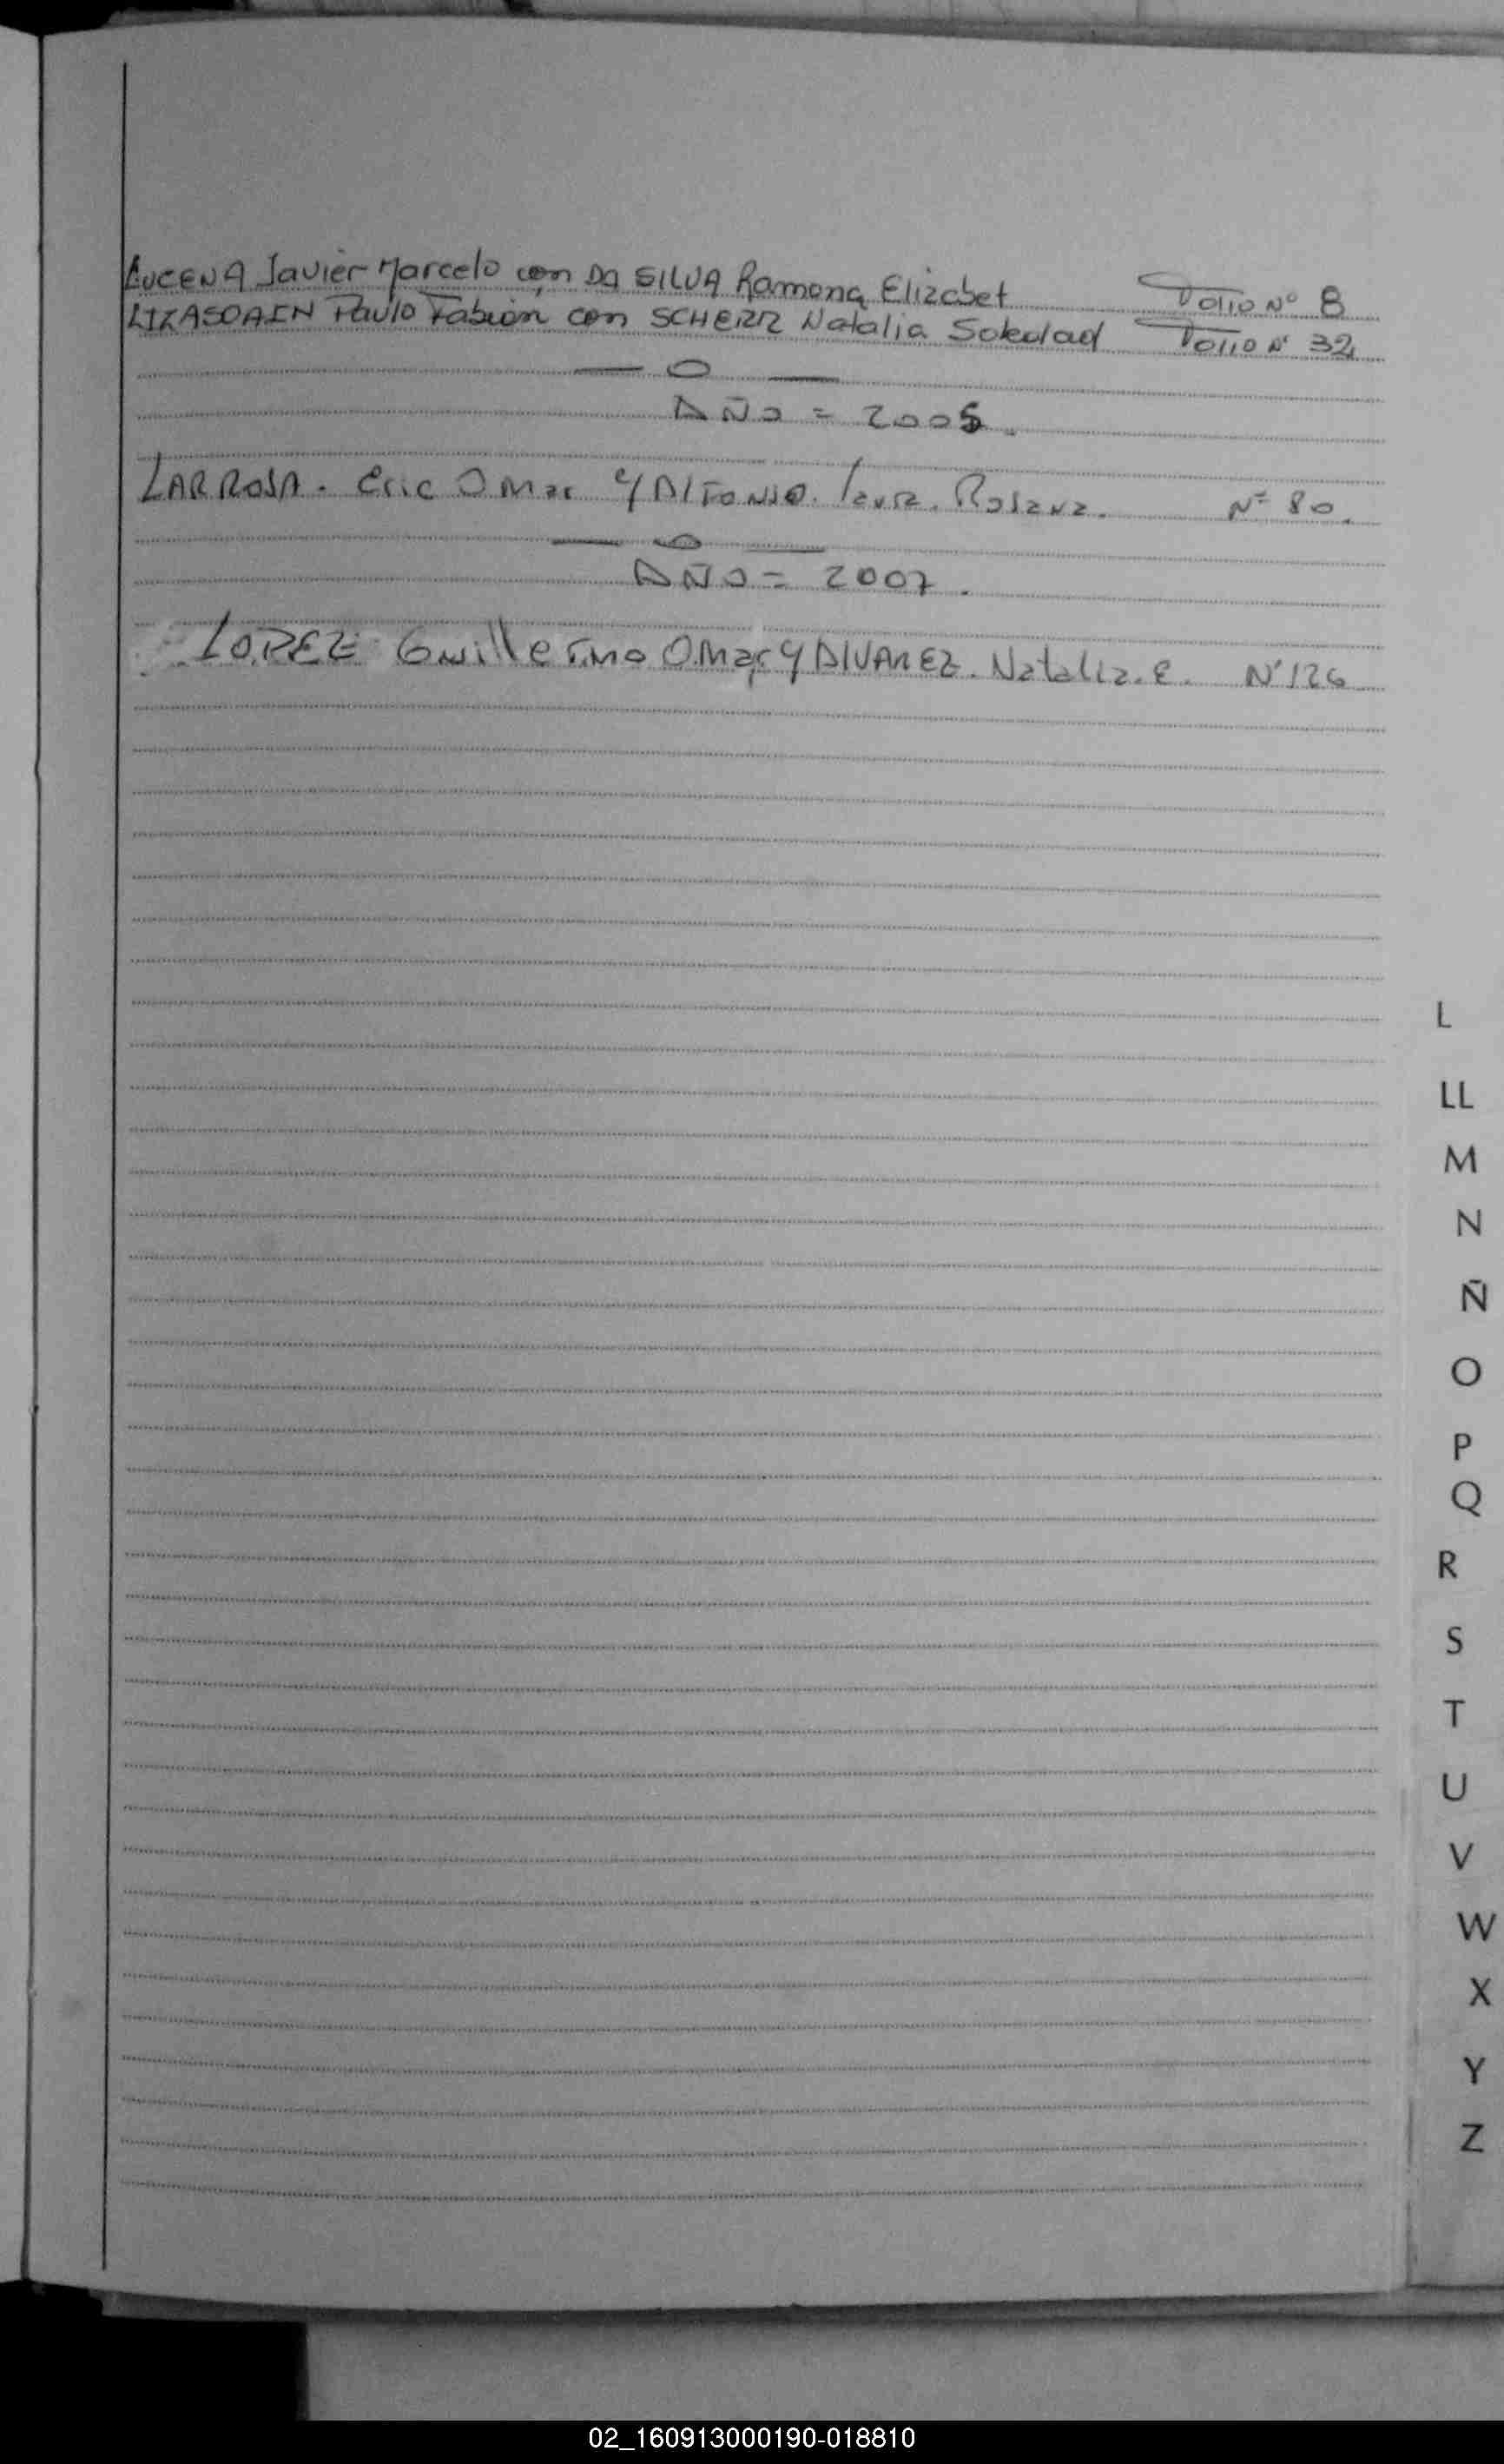 LUCENA Javier Marcelo con DA SILVA Ramona Elizabet Folio Nº 8
LIZASOAIN Paulo Fabian con SCHERR Natalia Soledad Folio Nº 32
— o —
AÑO = 2005.
LARROSA. Eric Omar c/ Alfonso. Laura. Rosana. Nº 80.
— o —
AÑO = 2007.
LOPEZ Guillermo Omar c/ ALVAREZ. Natalia. E. Nº 126
L
LL
M
N
Ñ
O
P
Q
R
S
T
U
V
W
X
Y
Z
02_160913000190-018810